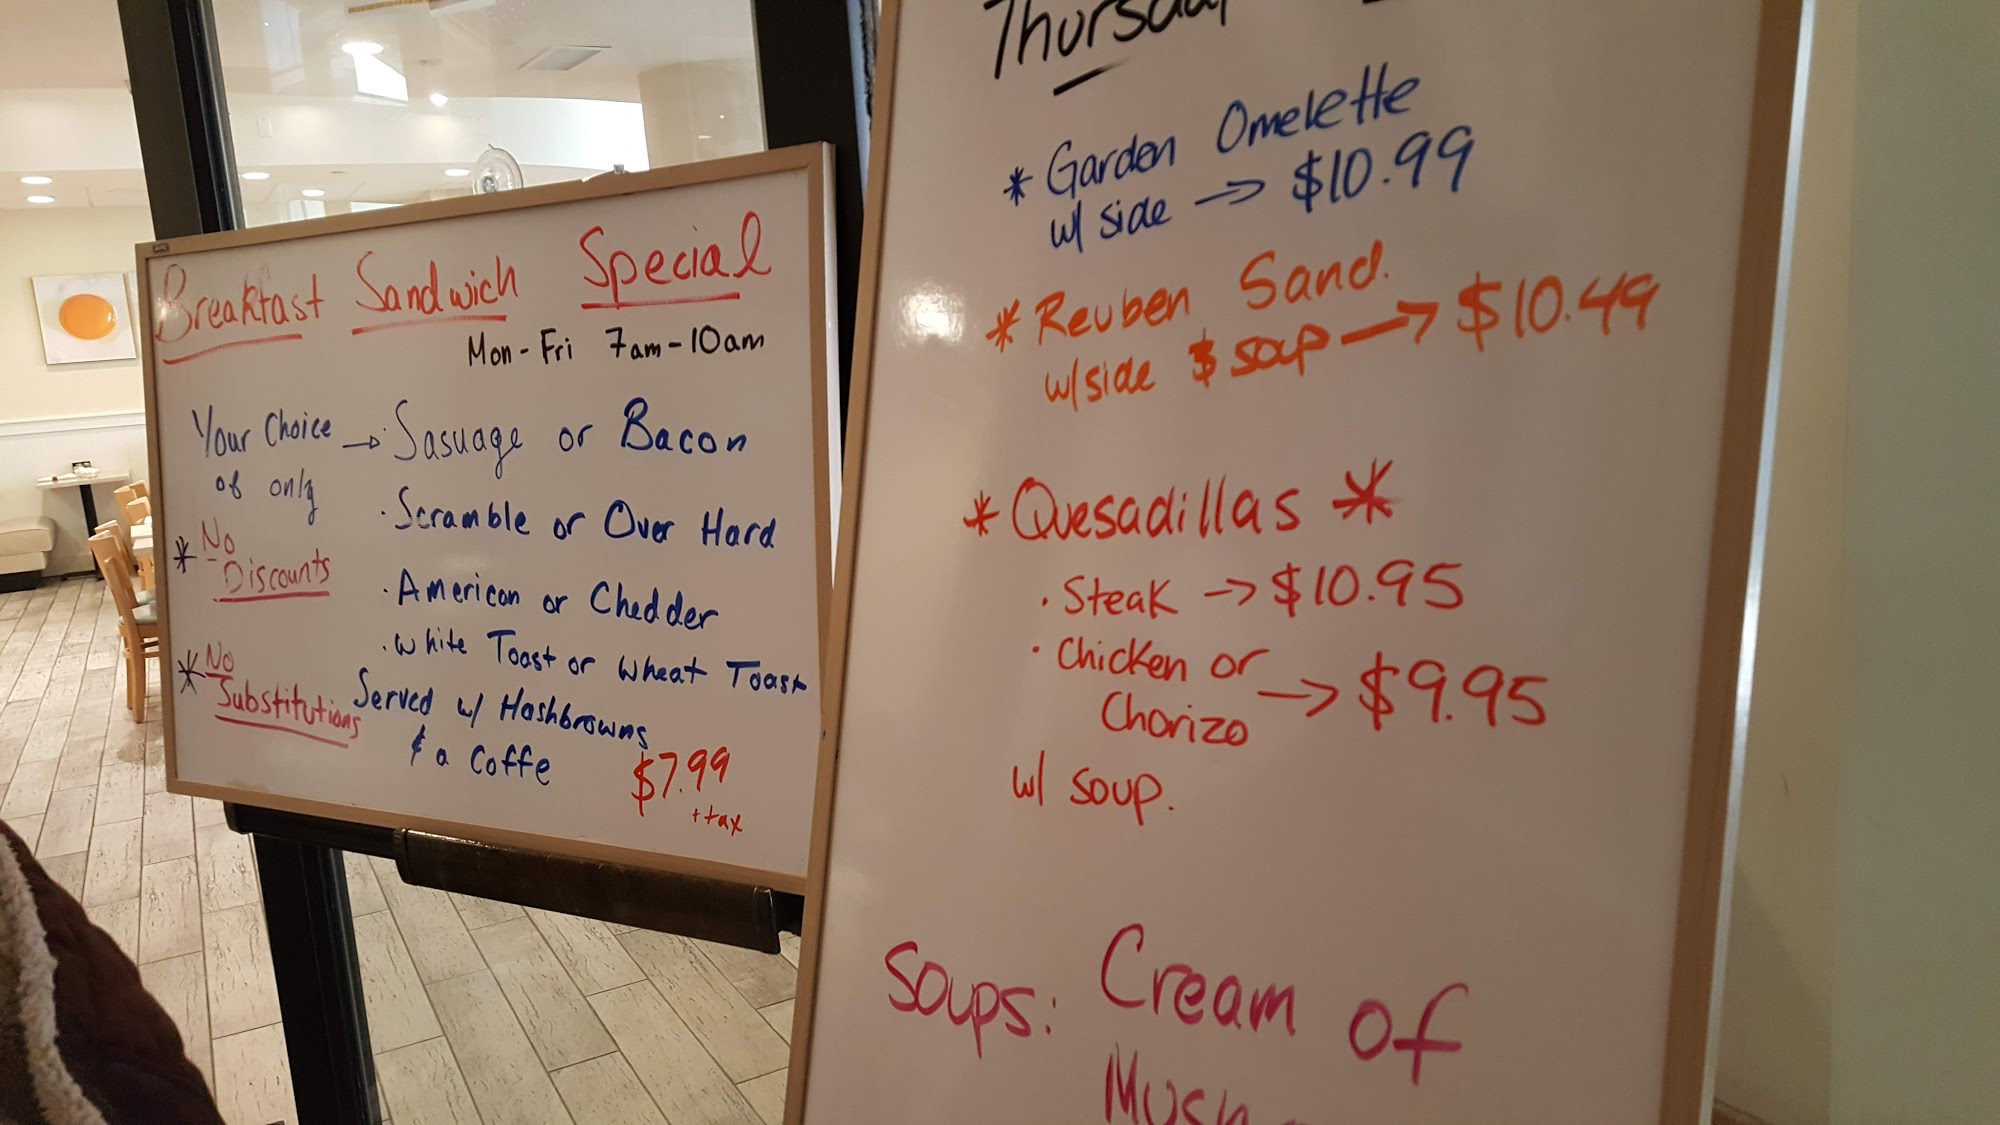 Breakfast Sandwich Special
Mon - Fri 7am - 10am
Your Choice → · Sasuage or Bacon
of only
· Scramble or Over Hard
* No
Discounts
· American or Chedder
· White Toast or Wheat Toast
* No
Substitutions
Served w/ Hashbrowns
& a Coffe
$7.99
+ tax
Thursday
* Garden Omelette
w/ side → $10.99
* Reuben Sand.
w/side & soup → $10.49
* Quesadillas *
· Steak → $10.95
· Chicken or
Chorizo → $9.95
w/ soup.
Soups: Cream of